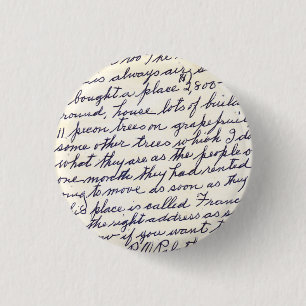 is always air
bought a place $2,800
round, house lots of
11 pecon trees on grapefruit
some other trees which I do
what they are as the people o
one month they had rented
ng to move as soon as they
his place is called Franc
the right address as s
w if you want t